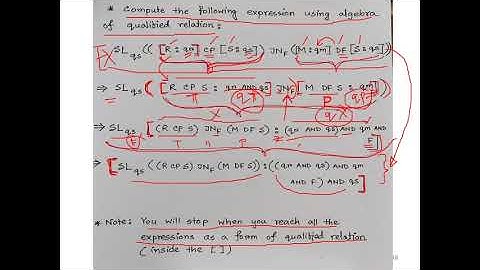 * Compute the following expression using algebra
of qualified relation:
SL qs (( [R : qn] CP [S : qs]) JN F ([M : qm] DF [S : qs]))
⇒ SL qs ( [R CP S : qn AND qs] JN F [M DF S : qm])
T P
X
⇒ SL qs [(R CP S) JN F (M DF S) : (qn AND qs) AND qm AND
F]
⇒ [SL qs ((R CP S) JN F (M DF S)) : ((qn AND qs) AND qm
AND F) AND qs]
* Note: You will stop when you reach all the
expressions as a form of qualified relation
(inside the [])